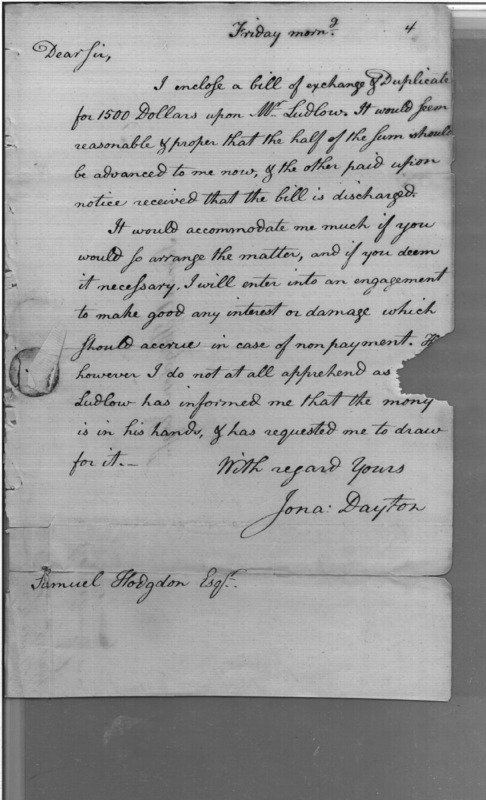 Friday morng. 4
Dear Sir,
I enclose a bill of exchange & Duplicate
for 1500 Dollars upon Mr. Ludlow. It would seem
reasonable & proper that the half of the sum should
be advanced to me now, & the other paid upon
notice received that the bill is discharged.
It would accommodate me much if you
would so arrange the matter, and if you deem
it necessary, I will enter into an engagement
to make good any interest or damage which
should accrue in case of nonpayment.
however I do not at all apprehend as
Ludlow has informed me that the mony
is in his hands, & has requested me to draw
for it.—
With regard Yours
Jona: Dayton
Samuel Hodgdon Esqr.